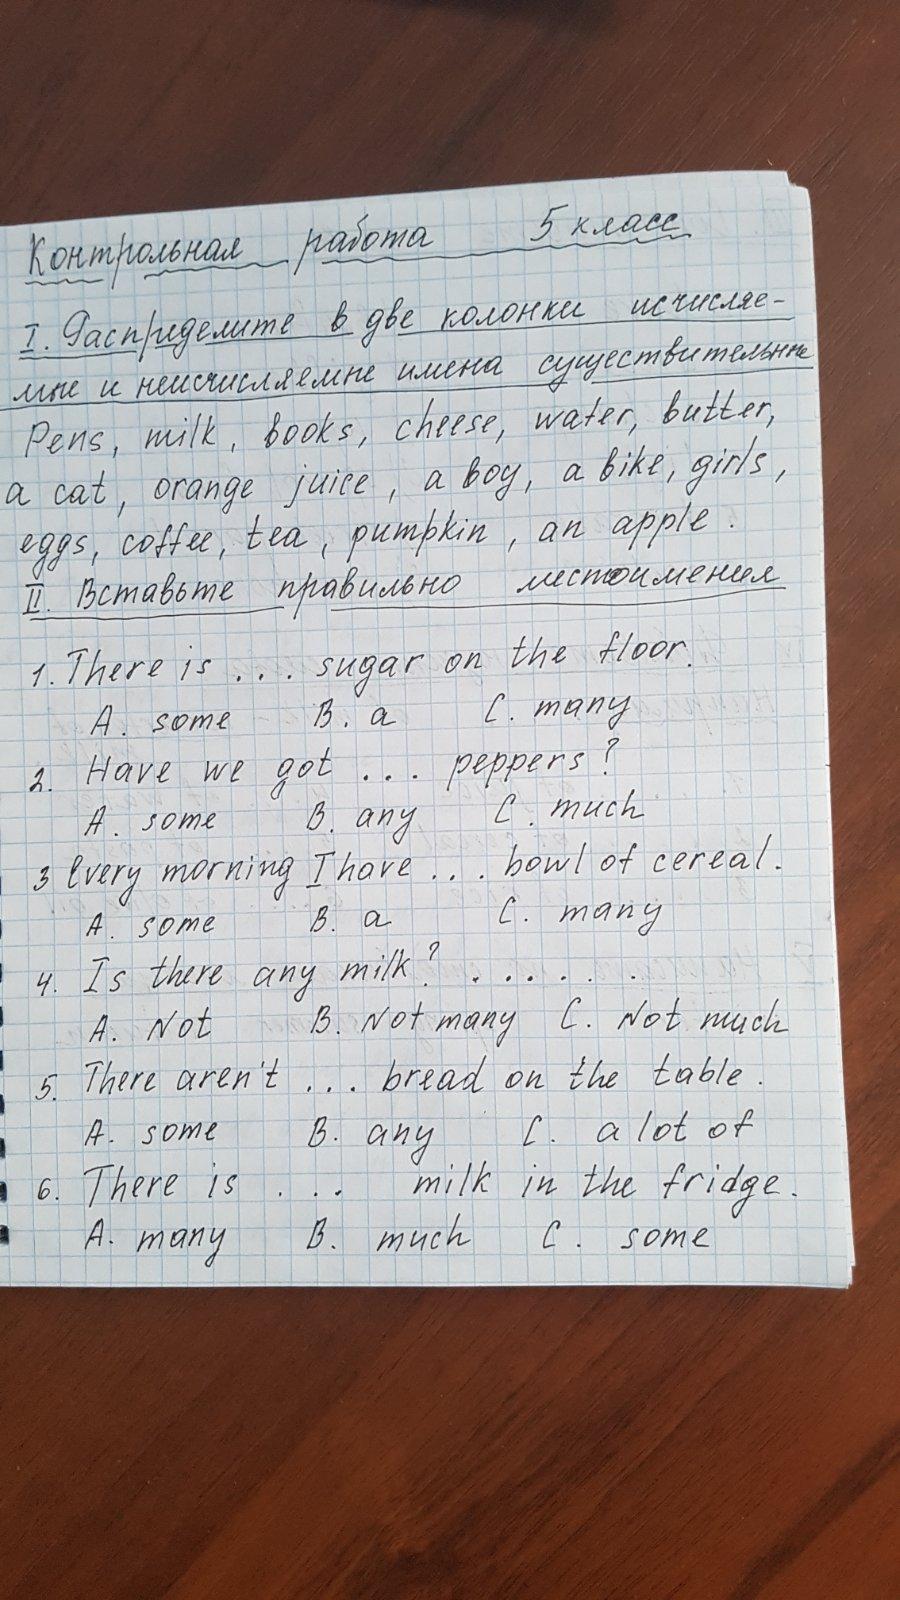 Контрольная работа 5 класс
I. Распределите в две колонки исчисляе-
мые и неисчисляемые имена существительные
Pens, milk, books, cheese, water, butter,
a cat, orange juice, a boy, a bike, girls,
eggs, coffee, tea, pumpkin, an apple.
II. Вставьте правильно местоимения
1. There is ... sugar on the floor.
A. some B. a C. many
2. Have we got ... peppers?
A. some B. any C. much
3 Every morning I have ... bowl of cereal.
A. some B. a C. many
4. Is there any milk? ......
A. Not B. Not many C. Not much
5. There aren't ... bread on the table.
A. some B. any C. a lot of
6. There is ... milk in the fridge.
A. many B. much C. some